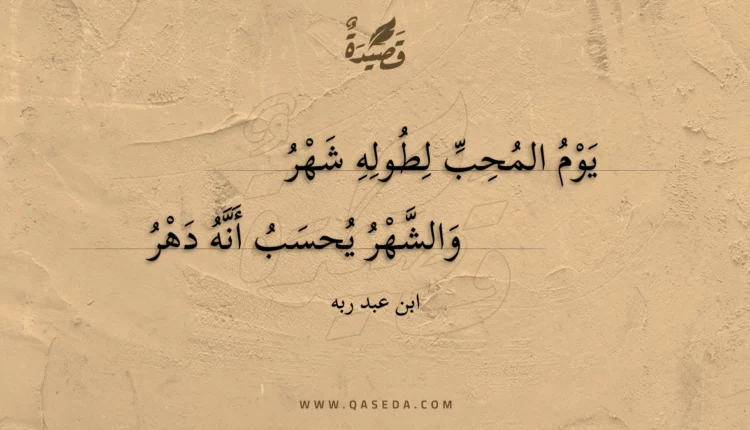 قَصِيْدَةٌ
يَوْمُ المُحِبِّ لِطُولِهِ شَهْرُ
وَالشَّهْرُ يُحسَبُ أَنَّهُ دَهْرُ
ابن عبد ربه
WWW.QASEDA.COM